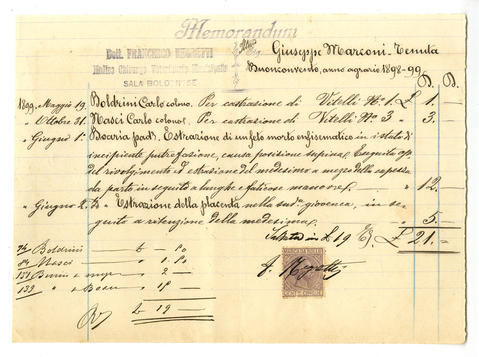 Memorandum
Dott. FRANCESCO NEGRETTI
Medico Chirurgo Veterinario Municipale
SALA BOLOGNESE
Giuseppe Marconi - Tenuta
Buonconvento, anno agrario 1898-99
1899. Maggio 19. Boldrini Carlo colono. Per castrazione di Vitelli N° 1. £ 1. —
" Ottobre 31. Nasci Carlo colono. Per castrazione di Vitelli N° 3 " 3. —
" Giugno 1° Boaria pad. Estrazione di un feto morto enfisematico in istato d'
incipiente putrefazione, causa posizione supina. Eseguito op.
del rivolgimento ed estrazione del medesimo a mezzo della
da parte in seguito a lunghe e faticose manovre. " 12. —
" Giugno 2. Estrazione della placenta nella sud. giovenca, in se-
guito a ritenzione della medesima. " 5. —
Saldata in £ 19 £ 21. —
74 Boldrini £ — 90
84 Nasci " 1. 90
151 " 2 —
139 " "
£ 19 —
MARCA DA BOLLO
CENT. CINQUE